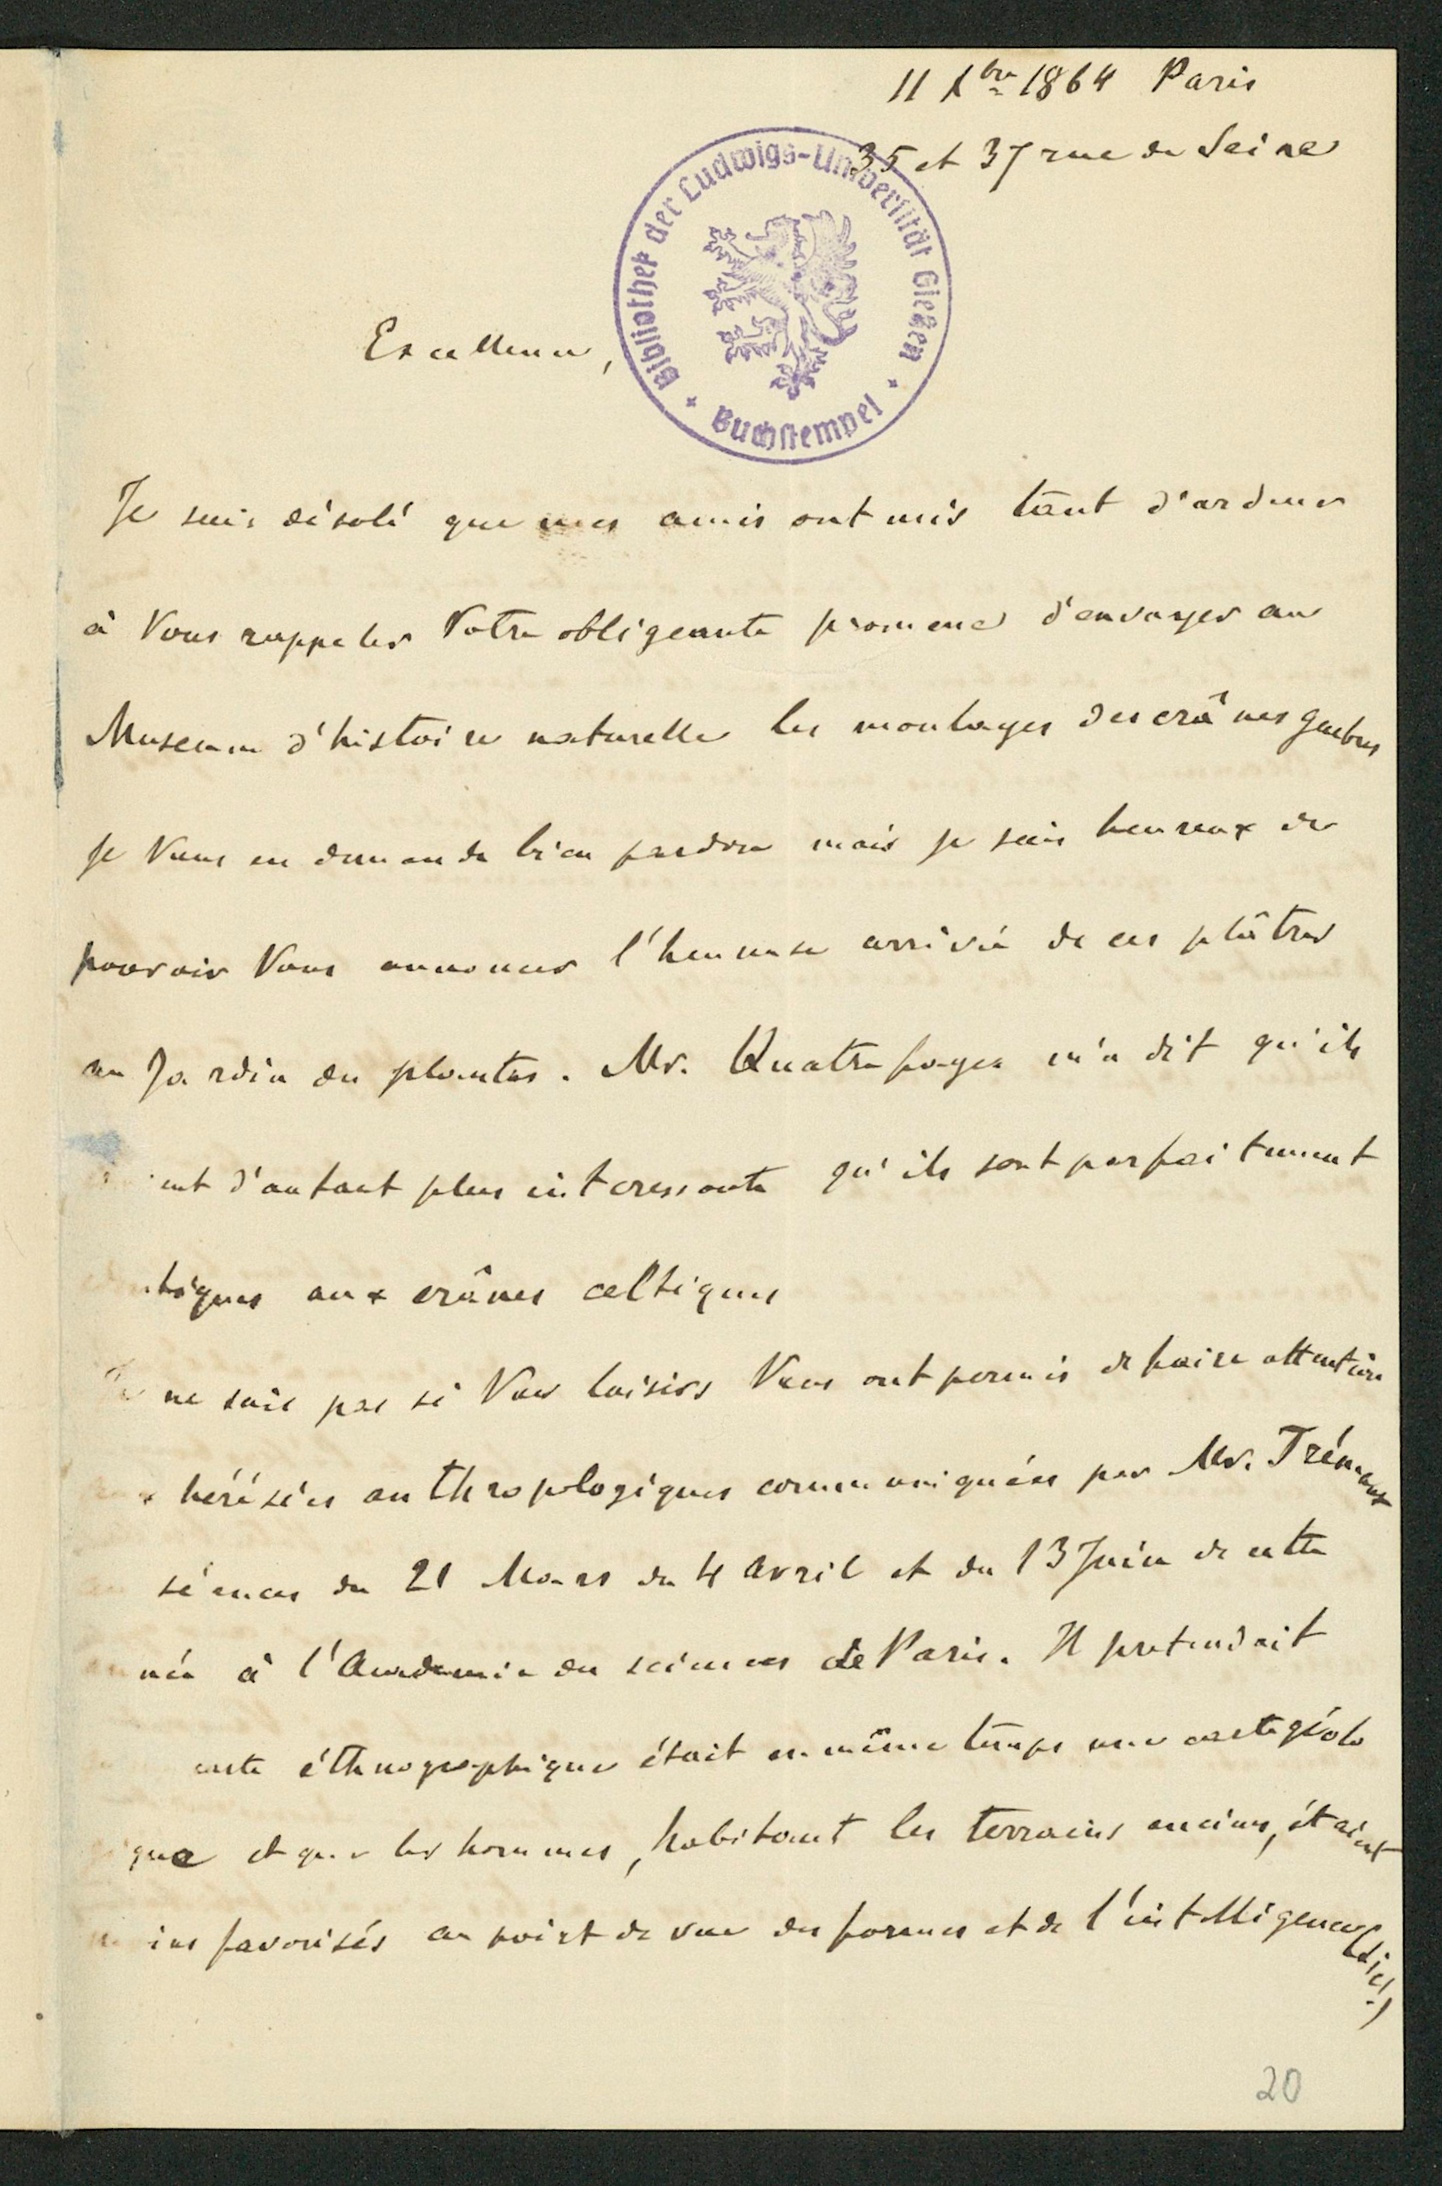 11 Xbre 1864 Paris
35 et 37 rue de Seine
Bibliothek der Ludwigs-Universität Gießen
Buchstempel
Excellence,
Je suis désolé que mes amis ont mis tant d'ardeur
à Vous rappeler Votre obligeante promesse d'envoyer au
Museum d'histoire naturelle les moulages des crânes guebres
je Vous en demande bien pardon mais je suis heureux de
pouvoir Vous annoncer l'heureuse arrivée de ces plâtres
au Jardin des plantes. Mr. Quatrefages m'a dit qu'ils
ent d'autant plus interessants qu'ils sont parfaitement
tiques aux crânes celtiques
Je ne sais pas si Vos loisirs Vous ont permis de faire attention
x hérésies anthropologiques communiquées par Mr. Trémaux
séances du 21 Mars du 4 Avril et du 13 Juin de cette
née à l'Academie des sciences de Paris. Il pretendait
carte éthnographique était en même temps une carte géolo
ique et que les hommes, habitant les terrains anciens, étaient
ins favorisés au point de vue des formes et de l'intelligence (sic!)
20